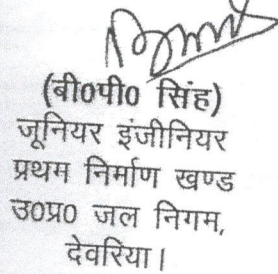 (बी०पी० सिंह)
जूनियर इंजीनियर
प्रथम निर्माण खण्ड
उ०प्र० जल निगम,
देवरिया।